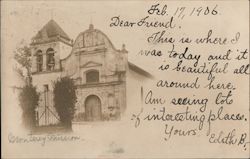 Feb. 17, 1906
Dear Friend.
This is where I
was today and it
is beautiful all
around here.
Am seeing lots
of interesting places.
Yours.
Edith B.
Monterey Mission